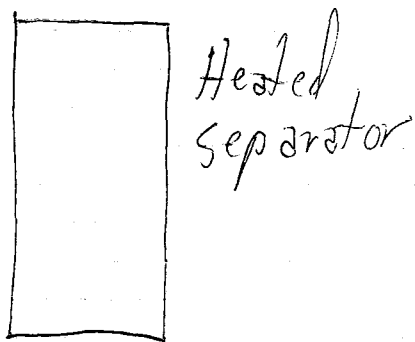 Heated
separator